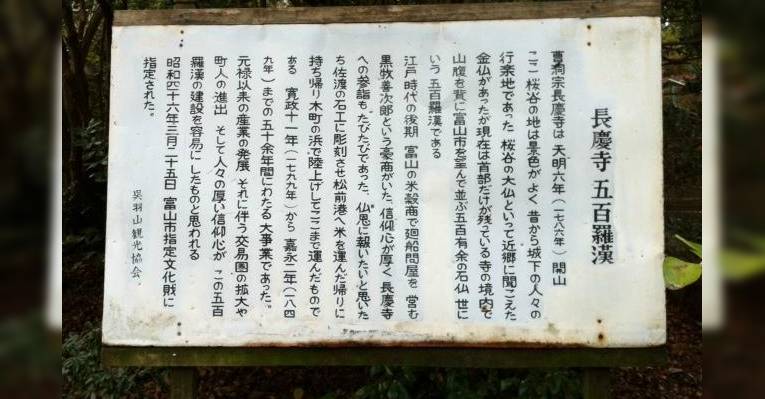 長慶寺 五百羅漢
曹洞宗長慶寺は 天明六年（一七八六年）開山
ここ 桜谷の地は景色がよく 昔から城下の人々の
行楽地であった 桜谷の大仏といって近郷に聞こえた
金仏があったが現在は首部だけが残っている 寺の境内で
山腹を背に富山市を望んで並ぶ五百有余の石仏 世に
いう 五百羅漢である
江戸時代の後期 富山の米穀商で廻船問屋を 営む
黒牧善次郎という豪商がいた、信仰心が厚く 長慶寺
への参詣も たびたびであった、仏恩に報いたいと思いた
ち佐渡の石工に彫刻させ松前港へ米を運んだ帰りに
持ち帰り 木町の浜で陸上げしてここまで運んだもので
ある 寛政十一年（一七九九年）から 嘉永二年（一八四
九年）までの五十余年間にわたる 大事業であった。
元禄以来の産業の発展 それに伴う交易圏の拡大や
町人の進出 そして人々の厚い信仰心が この五百
羅漢の建設を容易に したものと思われる
昭和四十六年三月二十五日 富山市指定文化財に
指定された。
呉羽山観光協会